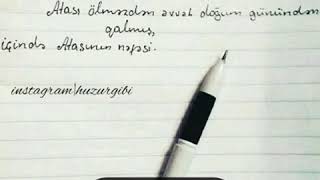 Atası ölməzdən əvvəl doğum günündən
qalmış,
içində Atasının nəfəsi.
instagram\huzurgibi